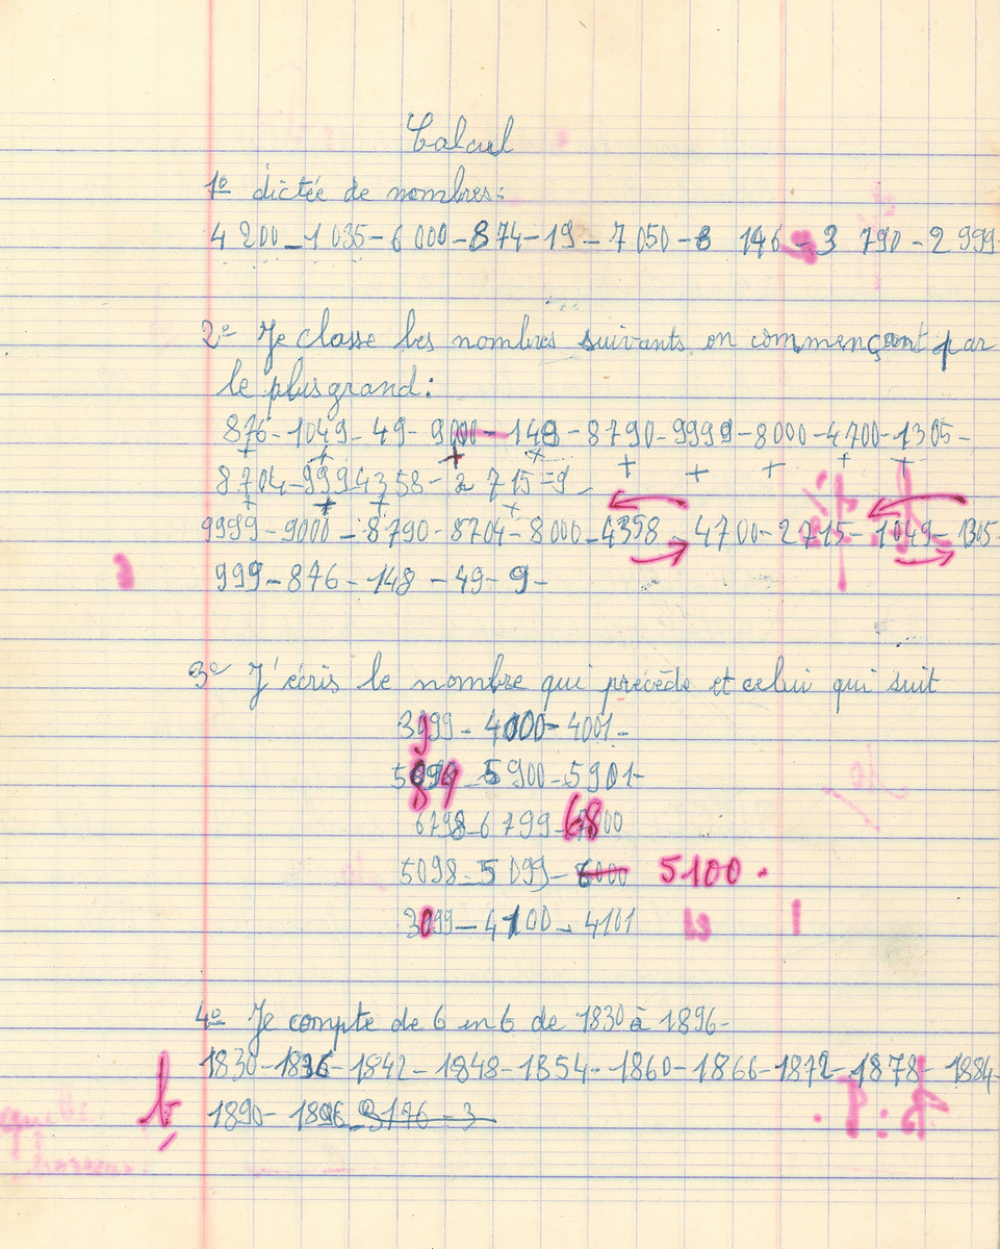 Calcul
1º dictée de nombres:
4 200 - 1 035 - 6 000 - 874 - 19 - 7 050 - 8 146 - 3 790 - 2 999
2º Je classe les nombres suivants en commençant par
le plus grand:
876 - 1049 - 49 - 9000 - 148 - 8790 - 9999 - 8000 - 4700 - 1305 -
8704 - 999 4358 - 2 715 = 9 -
9999 - 9000 - 8790 - 8704 - 8000 - 4358 - 4700 - 2715 - 1049 - 1305 -
999 - 876 - 148 - 49 - 9 -
3º J'écris le nombre qui précède et celui qui suit
3999 - 4000 - 4001 -
5899 - 5900 - 5901 -
6798 - 6799 - 6800
5098 - 5099 - 6000 5100.
3099 - 4100 - 4101
4º Je compte de 6 en 6 de 1830 à 1896 -
1830 - 1836 - 1842 - 1848 - 1854 - 1860 - 1866 - 1872 - 1878 - 1884 -
1890 - 1896 - 3176 - 3
b